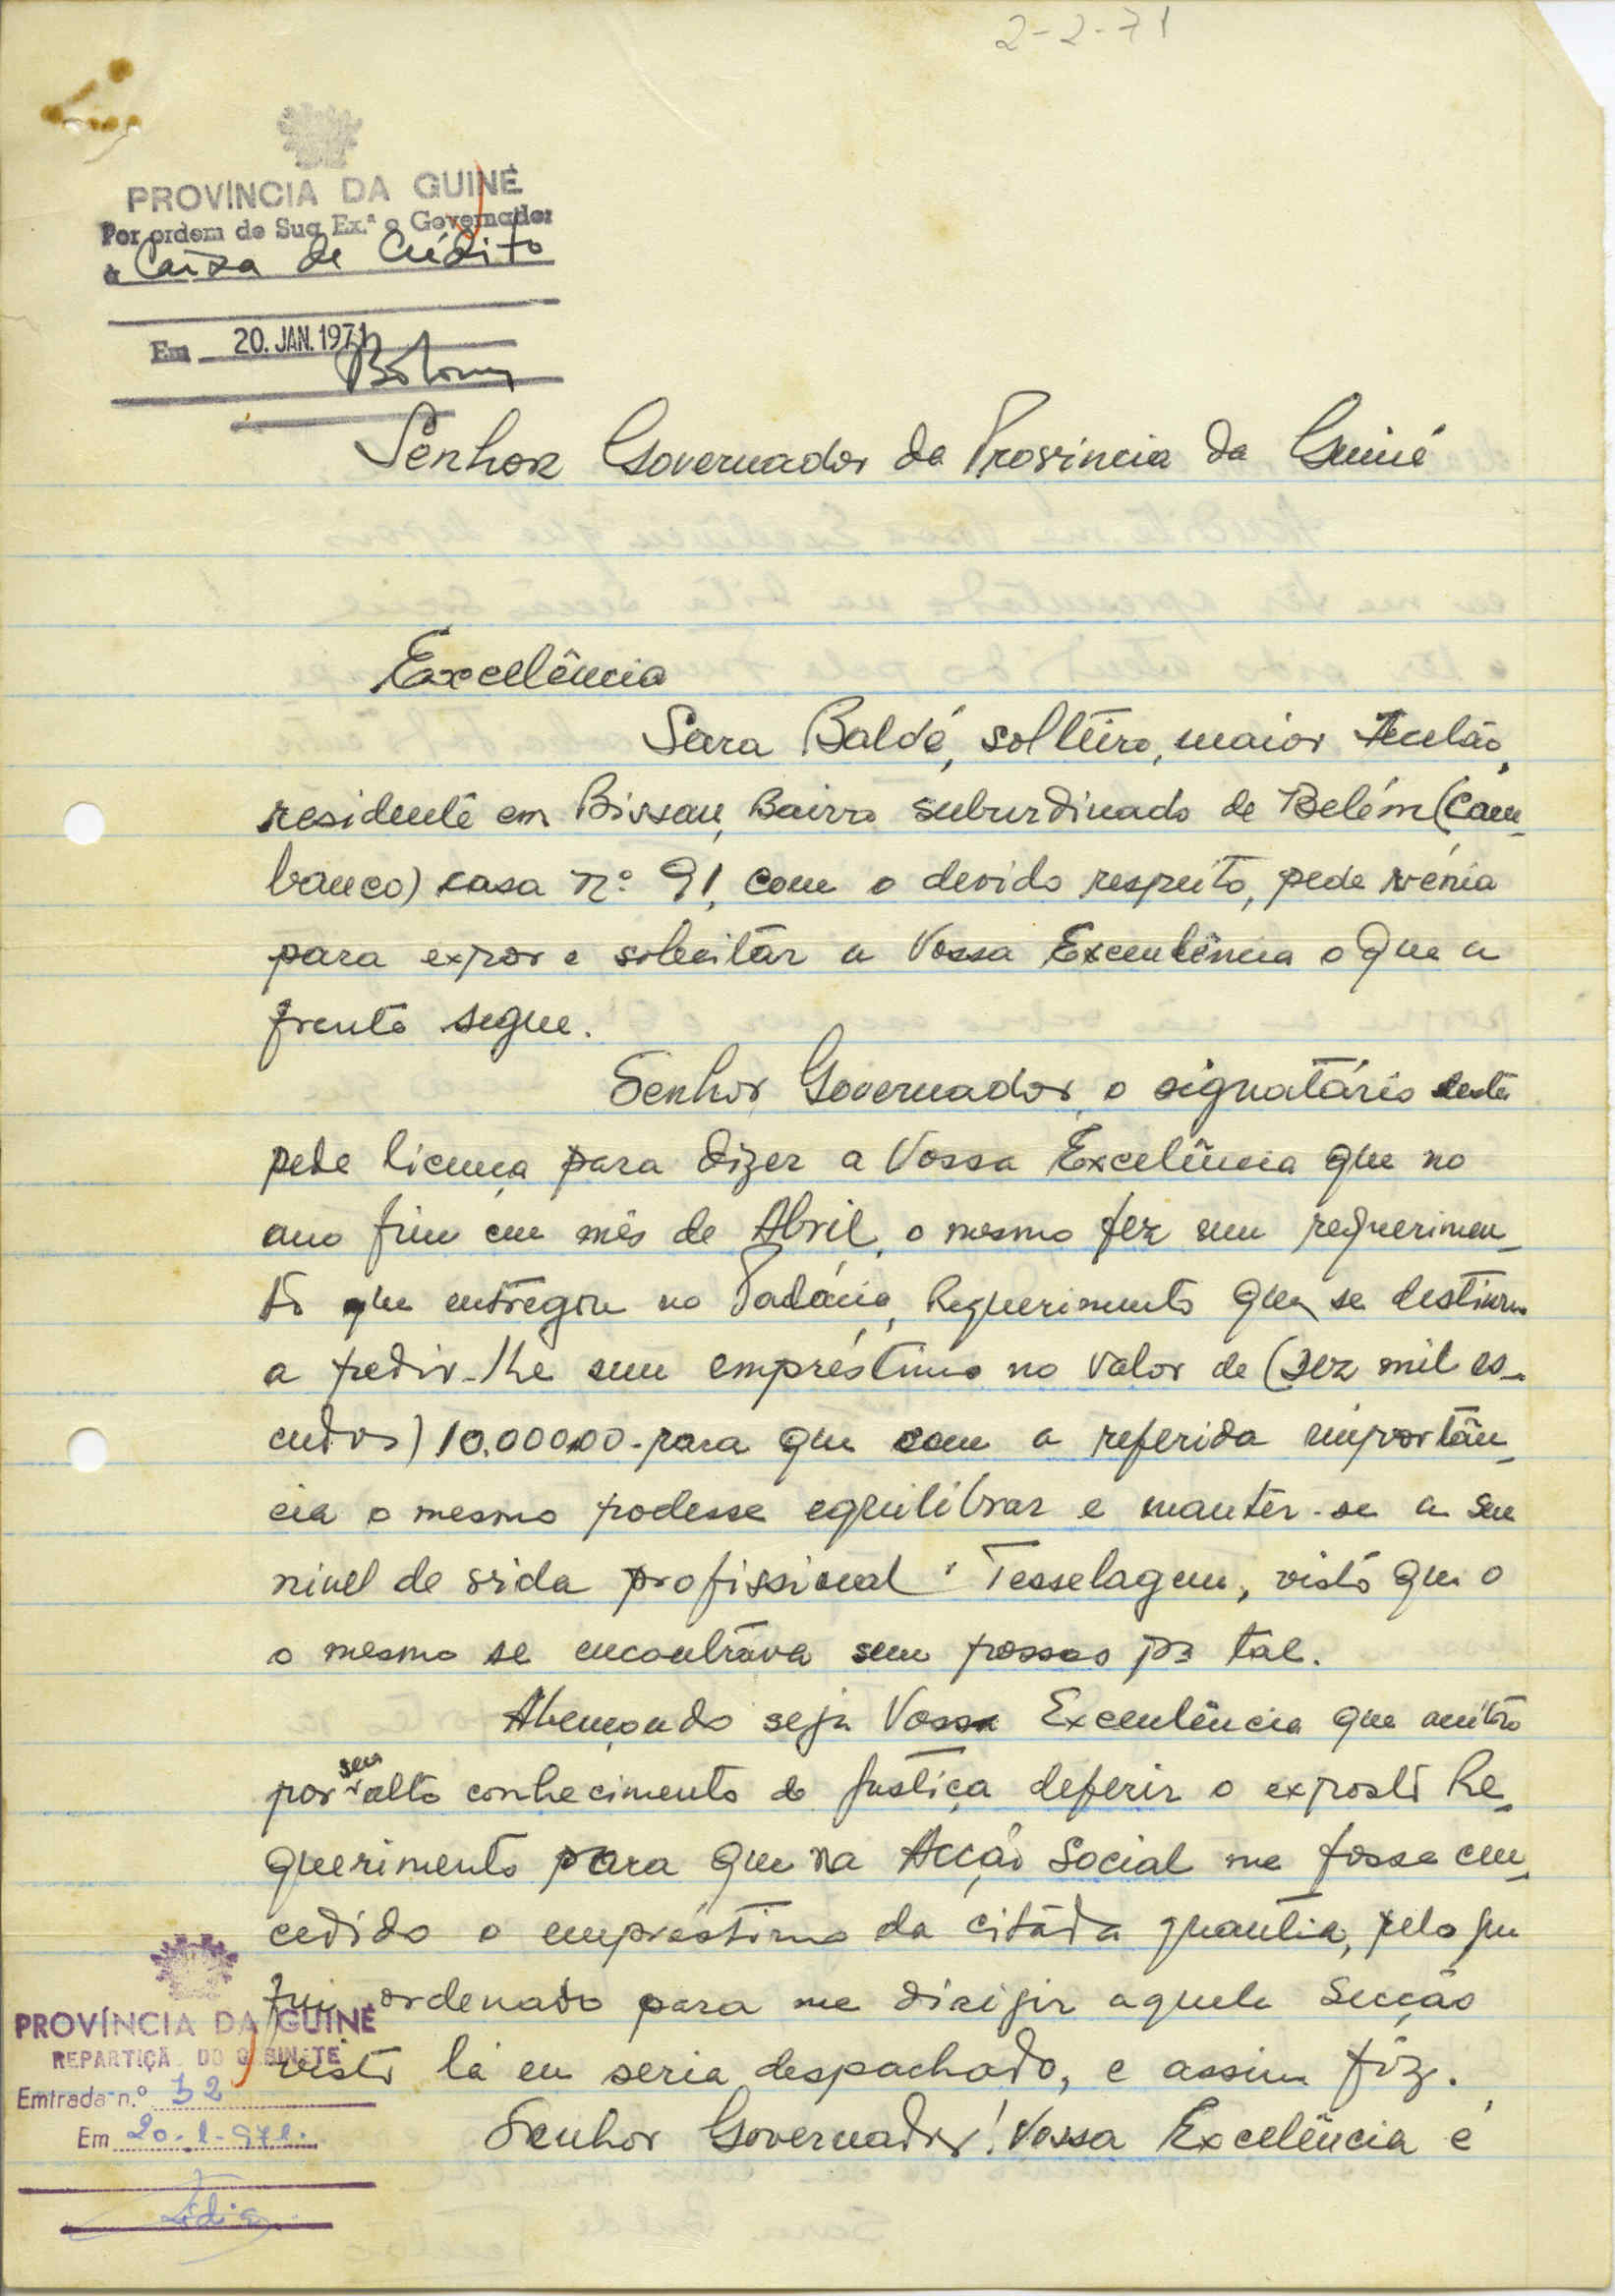 2-2-71
PROVÍNCIA DA GUINÉ
Por ordem de Sua Ex.ª o Governador
à Caixa de Crédito
Em 20. JAN. 1971
Senhor Governador da Província da Guiné
Excelência
Sara Baldé, solteiro, maior
residente em Bissau, Bairro suburdinado de Belém (Cam-
banco) casa nº 91, com o devido respeito, pede vénia
para expor e solicitar a Vossa Exceulência o que a
frente segue.
Senhor Governador, o signatário deste
pede licença para dizer a Vossa Excelência que no
ano fim em mês de Abril, o mesmo fez um requerimen-
to que entregou no Palácio, Requerimento que se destinou
a pedir-lhe um empréstimo no valor de (Dez mil es-
cudos) 10.000,00-para que com a referida importân-
cia o mesmo podesse equilibrar e manter-se a seu
nivel de vida profissional Tesselagem, visto que o
o mesmo se encontrava sem possas pª tal.
Abençoado seja Vossa Exceulência que muito
por seu alto conhecimento de Justiça deferir o exposto Re-
querimento para que na Acção Social me fosse cun-
cedido o empréstimo da citada quantia, pelo que
fui ordenado para me dirigir aquela Secção
visto lá eu seria despachado, e assim fiz.
Senhor Governador! Vossa Excelência é
PROVÍNCIA DA GUINÉ
REPARTIÇÃ DO GABINETE
Entrada n.º 32
Em 20-1-971.
Lidia